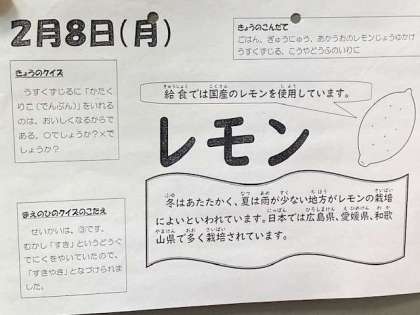 2月8日(月)
きょうのこんだて
ごはん、ぎゅうにゅう、あかうおのレモンじょうゆかけ
うすくずじる、こうやどうふのいりに
きょうのクイズ
うすくずじるに「かたく
りこ(でんぷん)」をいれる
のは、おいしくなるからで
ある。○でしょうか?×で
しょうか?
給食では国産のレモンを使用しています。
レモン
冬はあたたかく、夏は雨が少ない地方がレモンの栽培
によいといわれています。日本では広島県、愛媛県、和歌
山県で多く栽培されています。
まえのひのクイズのこたえ
せいかいは、③です。
むかし「すき」というどうぐ
でにくをやいていたので、
「すきやき」となづけられまし
た。